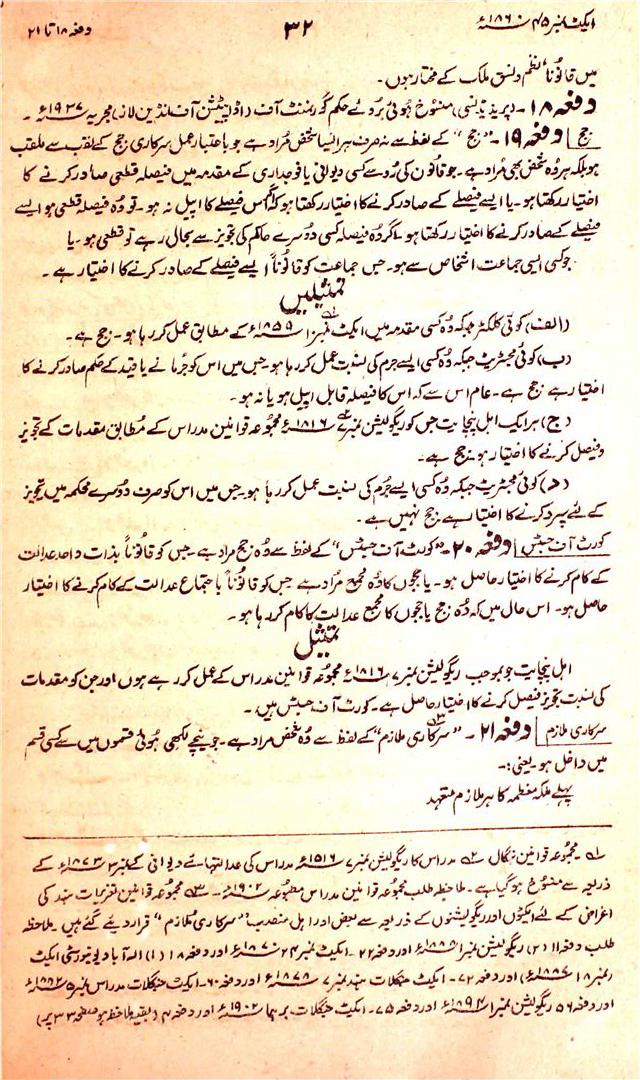 ایکٹ نمبر ۴۵ سنہ ۱۸۶۰ء ۳۲ دفعہ ۱۸ تا ۲۱
میں قانوناً نظم و نسق ملک کے مختار ہوں۔
دفعہ ۱۸۔ (پریذیڈنسی) منسوخ ہوئی بروئے حکم گورنمنٹ آف انڈیا (اڈاپٹیشن آف انڈین لاز) مجریہ سنہ ۱۹۳۷ء۔
جج دفعہ ۱۹۔ "جج" کے لفظ سے نہ صرف ہر ایسا شخص مراد ہے جو باعتبار عمل سرکاری جج کے لقب سے ملقب
ہو بلکہ ہر وہ شخص بھی مراد ہے۔ جو قانون کی رو سے کسی دیوانی یا فوجداری کے مقدمہ میں فیصلہ قطعی صادر کرنے کا
اختیار رکھتا ہو۔ یا ایسے فیصلے کے صادر کرنے کا اختیار رکھتا ہو کہ اگر اس فیصلے کا اپیل نہ ہو۔ تو وہ فیصلہ قطعی ہو ایسے
فیصلے کے صادر کرنے کا اختیار رکھتا ہو۔ اگر وہ فیصلہ کسی دوسرے حاکم کی تجویز سے بحال رہے تو قطعی ہو۔ یا
جو کسی ایسی جماعت اشخاص سے ہو۔ جس جماعت کو قانوناً ایسے فیصلے کے صادر کرنے کا اختیار ہے۔
تمثیلیں
(الف) کوئی کلکٹر جبکہ وہ کسی مقدمہ میں ایکٹ نمبر ۱۰ سنہ ۱۸۵۹ء کے مطابق عمل کر رہا ہو۔ جج ہے۔
(ب) کوئی مجسٹریٹ جبکہ وہ کسی ایسے جرم کی نسبت عمل کر رہا ہو۔ جس میں اس کو جرمانے یا قید کے حکم صادر کرنے کا
اختیار ہے جج ہے۔ عام اس سے کہ اس کا فیصلہ قابل اپیل ہو یا نہ ہو۔
(ج) ہر ایک اہل پنچایت جس کو ریگولیشن نمبر ۷ سنہ ۱۸۱۶ء مجموعہ قوانین مدراس کے مطابق مقدمات کے تجویز
و فیصل کرنے کا اختیار ہو۔ جج ہے۔
(د) کوئی مجسٹریٹ جبکہ وہ کسی ایسے جرم کی نسبت عمل کر رہا ہو۔ جس میں اس کو صرف دوسرے محکمہ میں تجویز
کے لئے سپرد کرنے کا اختیار ہے جج نہیں ہے۔
کورٹ آف جسٹس دفعہ ۲۰۔ "کورٹ آف جسٹس" کے لفظ سے وہ جج مراد ہے۔ جس کو قانوناً بذات واحد عدالت
کے کام کرنے کا اختیار حاصل ہو۔ یا ججوں کا وہ مجمع مراد ہے جس کو قانوناً باجتماع عدالت کے کام کرنے کا اختیار
حاصل ہو۔ اس حال میں کہ وہ جج یا ججوں کا مجمع عدالت کا کام کر رہا ہو۔
تمثیل
اہل پنچایت جو بموجب ریگولیشن نمبر ۷ سنہ ۱۸۱۶ء مجموعہ قوانین مدراس کے عمل کر رہے ہوں اور جن کو مقدمات
کی نسبت تجویز فیصل کرنے کا اختیار حاصل ہے۔ کورٹ آف جسٹس ہیں۔
سرکاری ملازم دفعہ ۲۱۔ "سرکاری ملازم" کے لفظ سے وہ شخص مراد ہے۔ جو نیچے لکھی ہوئی قسموں میں سے کسی قسم
میں داخل ہو۔ یعنی:۔
پہلے ملکہ معظمہ کا ہر ملازم متعہد
۱۔ مجموعہ قوانین بنگال ۲۔ مدراس کا ریگولیشن نمبر ۷ سنہ ۱۸۱۶ء مدراس کی عدالتہائے دیوانی کے نمبر ۳ سنہ ۱۸۷۳ء کے
ذریعہ سے منسوخ ہو گیا ہے۔ ملاحظہ طلب مجموعہ قوانین مدراس مطبوعہ سنہ ۱۹۰۲ء۔ ۳۔ مجموعہ قوانین تعزیرات ہند کی
اغراض کے لئے ایکٹوں اور ریگولیشنوں کے ذریعہ سے بعض اور اہل منصب "سرکاری ملازم" قرار دیئے گئے ہیں۔ ملاحظہ
طلب دفعہ ۱۱ (۲) ریگولیشن نمبر ۱ سنہ ۱۸۸۵ء اور دفعہ ۲۲۔ ایکٹ نمبر ۲۴ سنہ ۱۸۷۰ء اور دفعہ ۱۸ (۱) الہ آباد یونیورسٹی ایکٹ
(نمبر ۱۸ سنہ ۱۸۸۷ء) اور دفعہ ۷۲۔ ایکٹ جنگلات ہند نمبر ۷ سنہ ۱۸۷۸ء اور دفعہ ۶۰۔ ایکٹ جنگلات مدراس نمبر ۵ سنہ ۱۸۸۲ء
اور دفعہ ۵۶ ریگولیشن نمبر ۱ سنہ ۱۸۹۴ء اور دفعہ ۷۵۔ ایکٹ جنگلات برہما سنہ ۱۹۰۲ء اور دفعہ ۴ (بقیہ ملاحظہ ہو صفحہ ۳۳ پر)